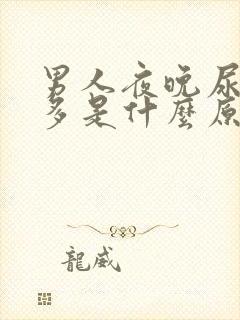 男人夜晚尿
多是什麼原
龍威